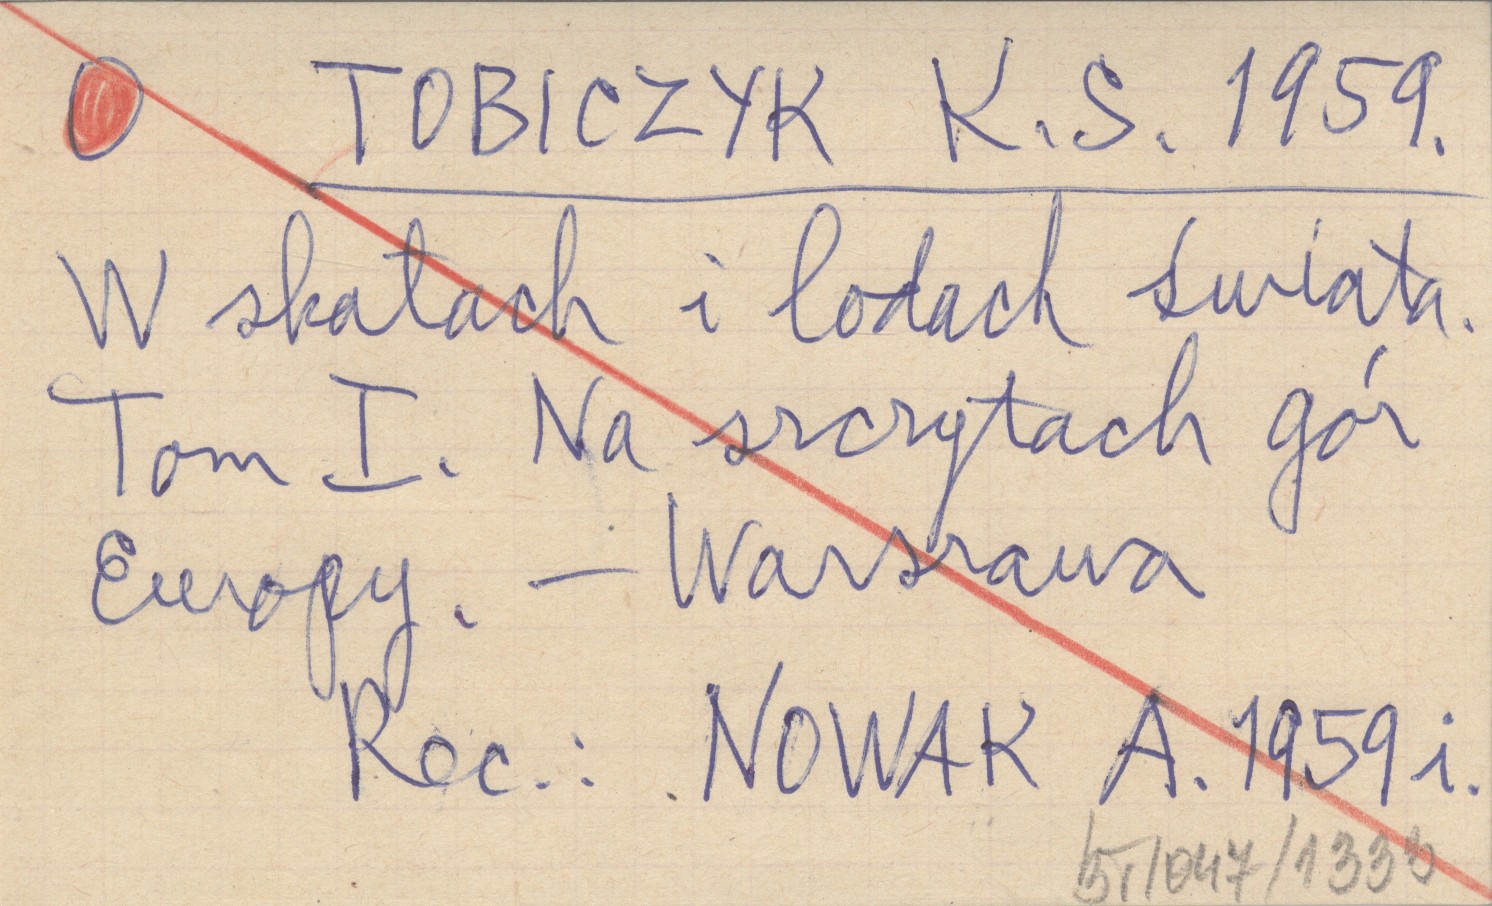 TOBICZYK K.S. 1959.
W skałach i lodach świata.
Tom I. Na szczytach gór
Europy. — Warszawa
Rec.: NOWAK A. 1959 i.
/047/1333